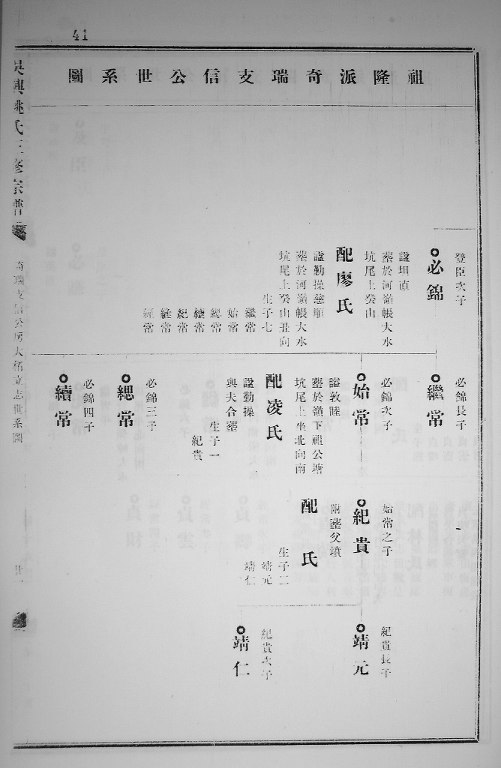 41
祖隆派奇瑞支信公世系圖
登臣次子
必錦
諡坦直
塟於河嶺帳大水
坑尾上癸山
配廖氏
諡勤操慈順
塟於河嶺帳大水
坑尾上癸山丑向
生子七
繼常
始常
總常
續常
紀常
經常
必錦長子
繼常
必錦次子
始常
諡敦睦
塟於嶺下祖公塘
坑尾上坐北向南
配凌氏
諡勤操
與夫合塟
生子一
紀貴
必錦三子
總常
必錦四子
續常
始常之子
紀貴
附塟父墳
配 氏
生子二
靖元
靖仁
紀貴長子
靖元
紀貴次子
靖仁